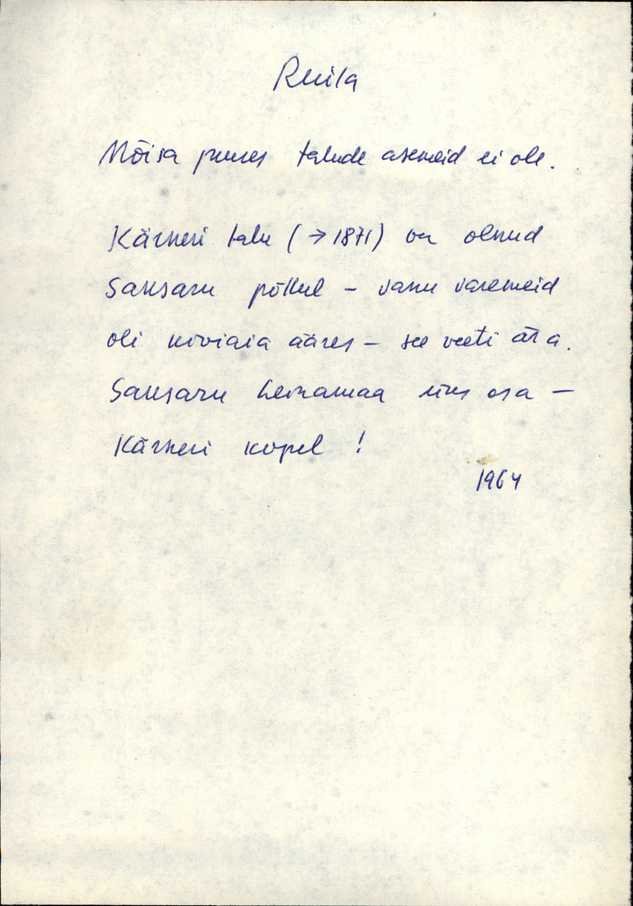 Ruila
Mõisa juures talude asemeid ei ole.
Kärneri talu (→1871) on olnud
Sausaru põllul – vanu varemeid
oli kiviaia ääres – see veeti ära.
Sausaru heinamaa üks osa –
Kärneri kopel !
1964